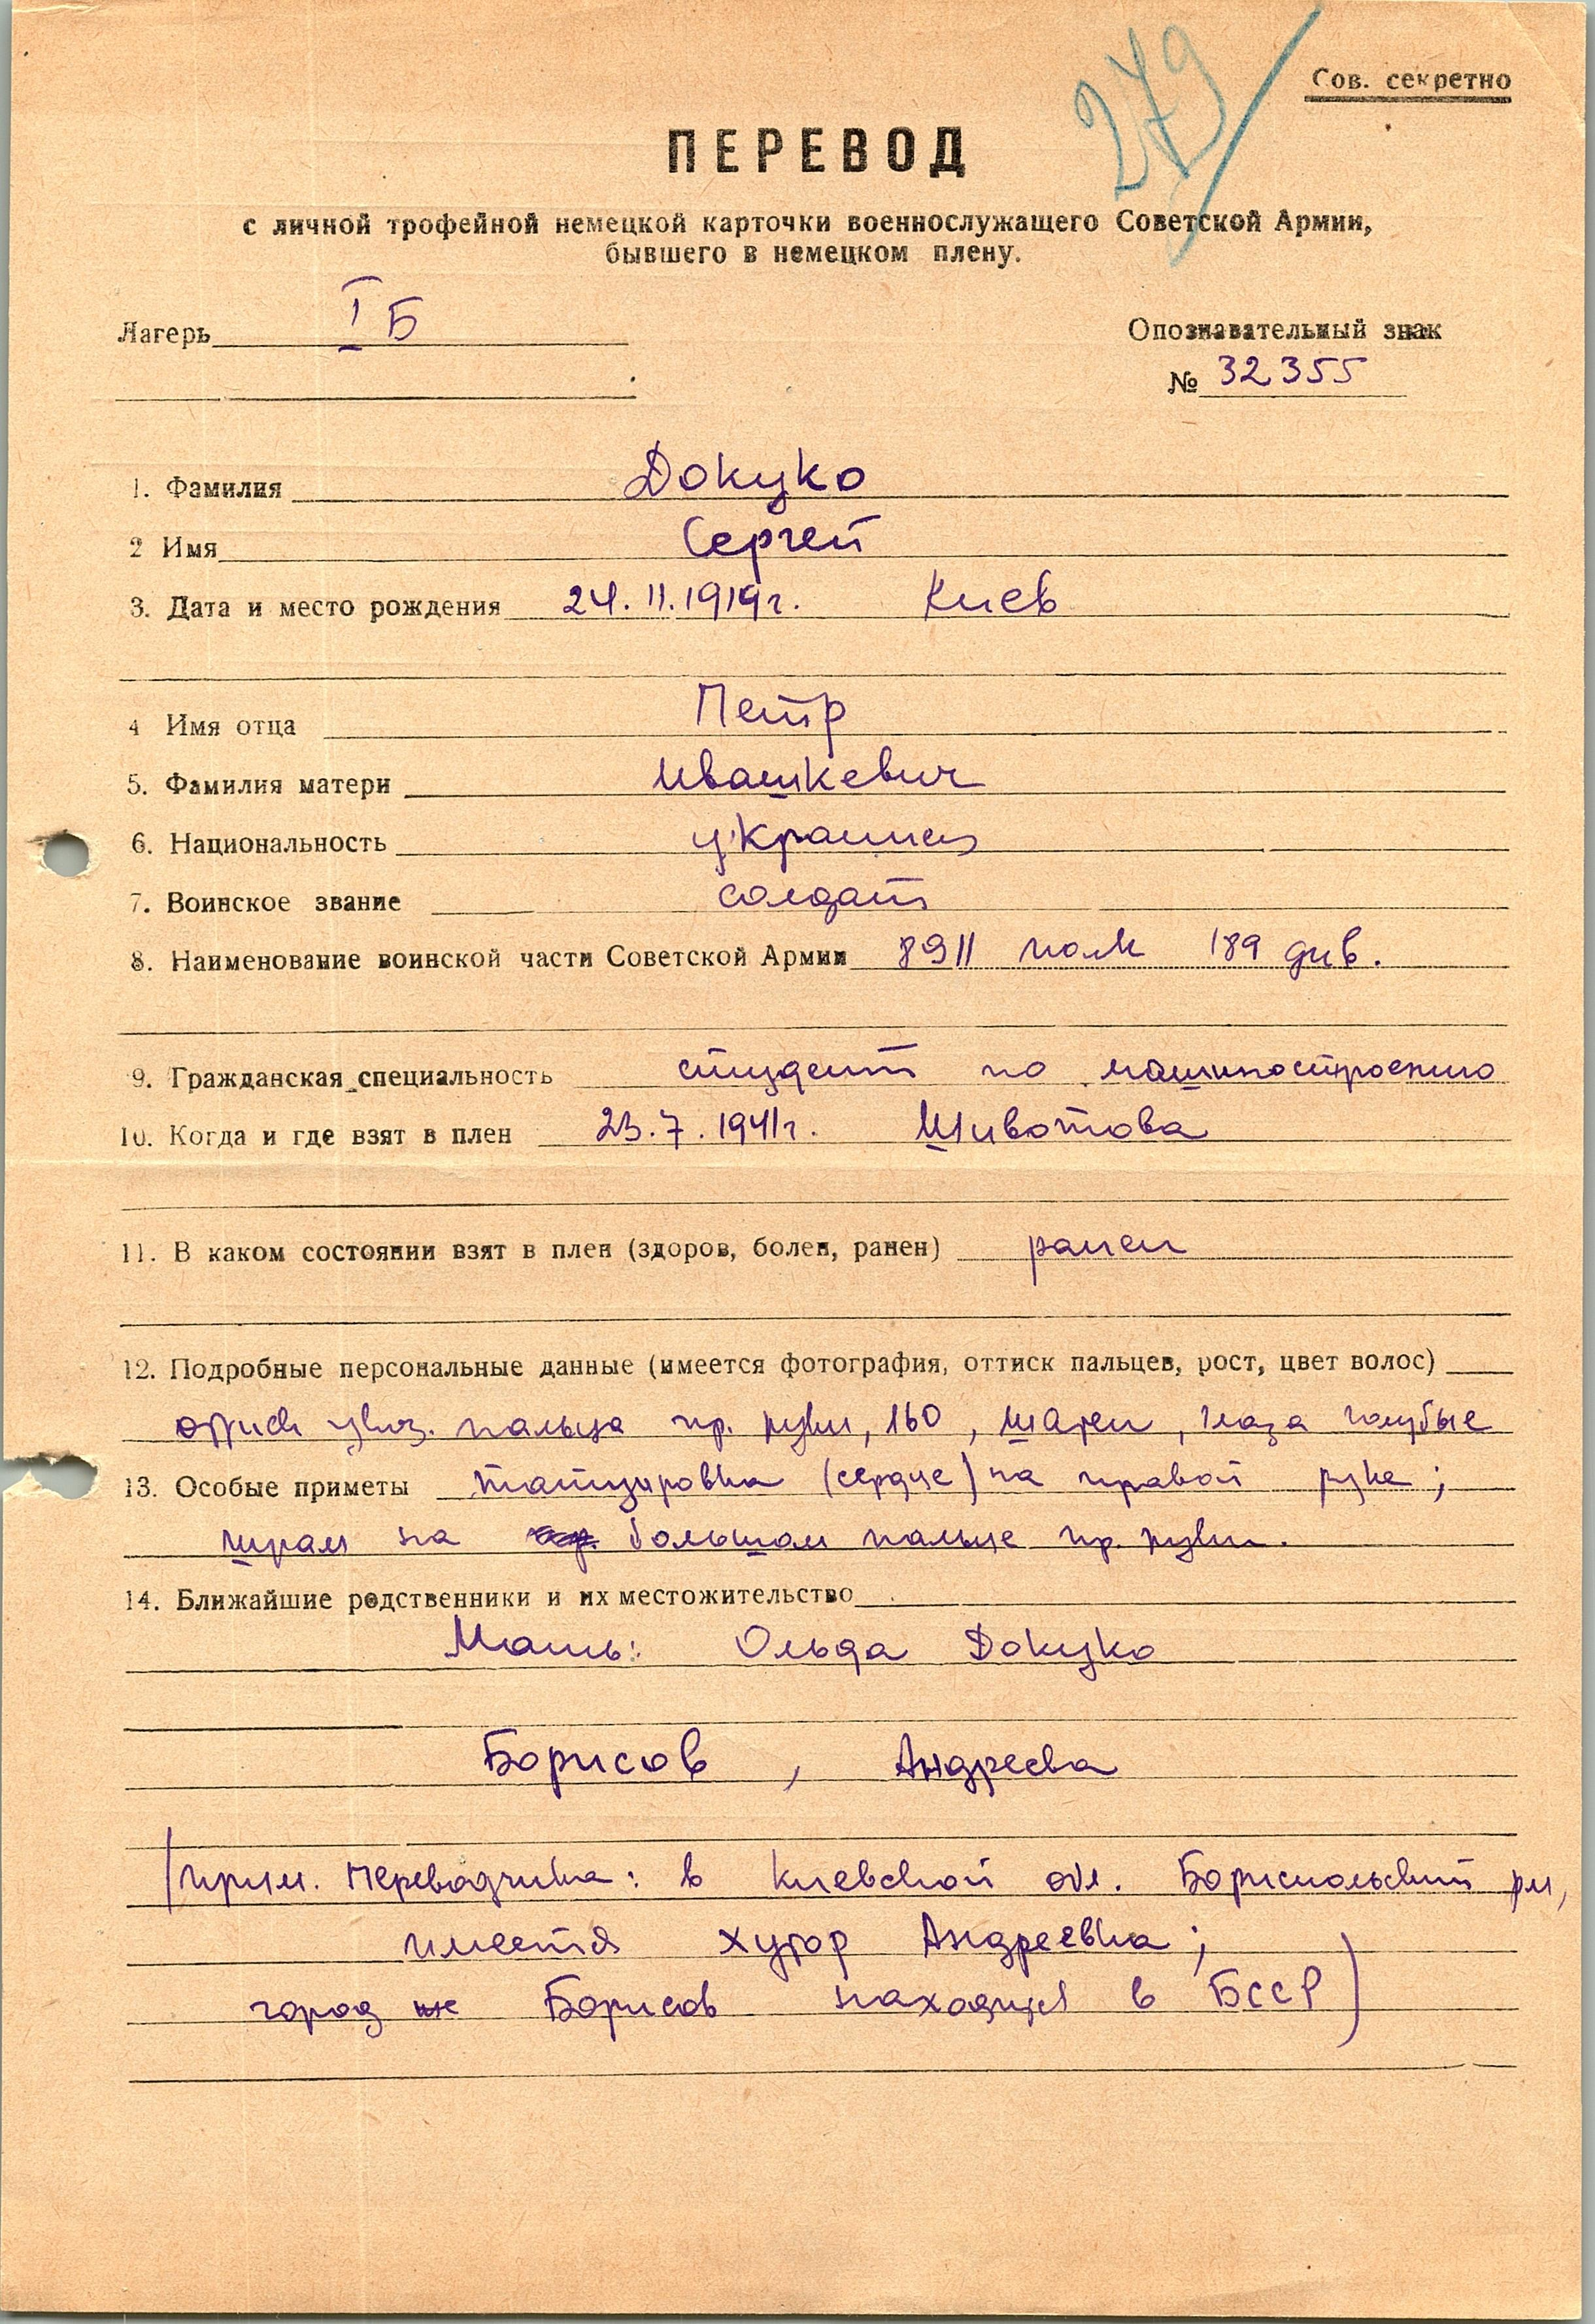 279
Сов. секретно
ПЕРЕВОД
с личной трофейной немецкой карточки военнослужащего Советской Армии,
бывшего в немецком плену.
Лагерь I Б
Опознавательный знак
№ 32355
1. Фамилия Докуко
2 Имя Сергей
3. Дата и место рождения 24.11.1919г. Киев
4 Имя отца Петр
5. Фамилия матери Ивашкевич
6. Национальность украинец
7. Воинское звание солдат
8. Наименование воинской части Советской Армии 8911 полк 189 див.
9. Гражданская специальность студент по машиностроению
10. Когда и где взят в плен 23.7.1941г. Шивотова
11. В каком состоянии взят в плен (здоров, болен, ранен) ранен
12. Подробные персональные данные (имеется фотография, оттиск пальцев, рост, цвет волос)
оттиск указ. пальца пр. руки, 160, шатен, глаза голубые
13. Особые приметы татуировка (сердце) на правой руке;
шрам на большом пальце пр. руки.
14. Ближайшие родственники и их местожительство
Мать: Ольда Докуко
Борисов, Андреева
(прим. переводчика: в Киевской обл. Бориспольский рн,
имеется хутор Андреевка;
город же Борисов находится в БССР)